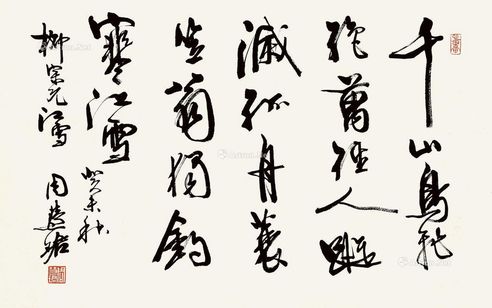 千山鳥飛
絕萬徑人蹤
滅孤舟蓑
笠翁獨釣
寒江雪 癸未秋
柳宗元江雪 周慧珺